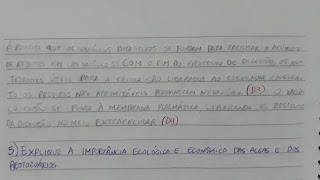 É preciso que os vacúolos digestivos se fundam para facilitar o acúmulo
de restos em um vacúolo. Com o fim do processo de digestão, os nu-
trientes úteis para a célula são liberados ao citoplasma, enquan-
to os produtos não aproveitáveis permanecem no vacúolo. (D3) O vacú-
olo então se funde à membrana plasmática, liberando os resíduos
da digestão no meio extracelular. (D4)
5) Explique a importância ecológica e econômica das algas e dos
protozoários.